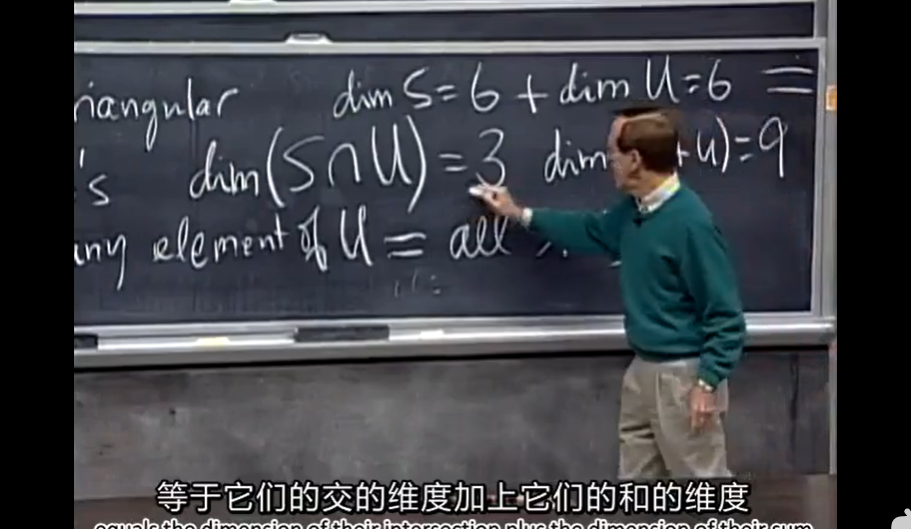 riangular dim S = 6 + dim U = 6 =
's dim(S∩U) = 3 dim +U) = 9
any element of U = all
等于它们的交的维度加上它们的和的维度
equals the dimension of their intersection plus the dimension of their sum